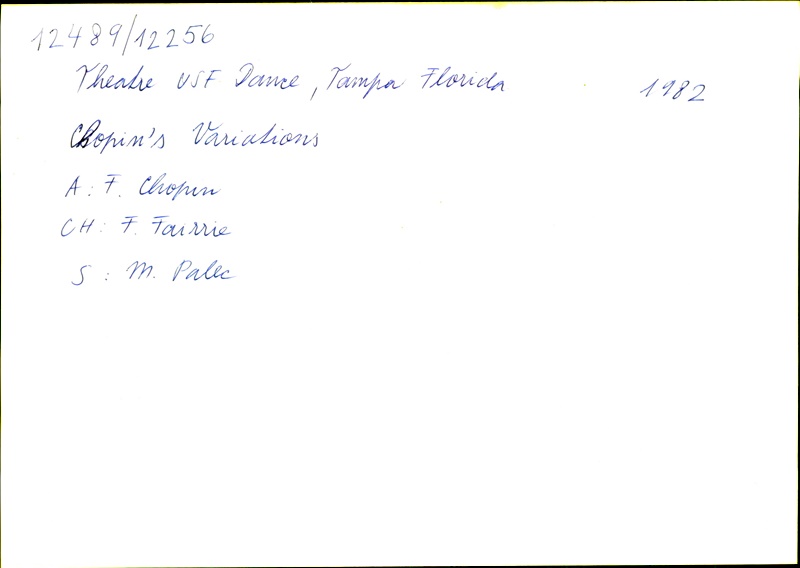 12489/12256
Theatre USF Dance, Tampa Florida 1982
Chopin's Variations
A: F. Chopin
CH: F. Fairrie
S: M. Palec